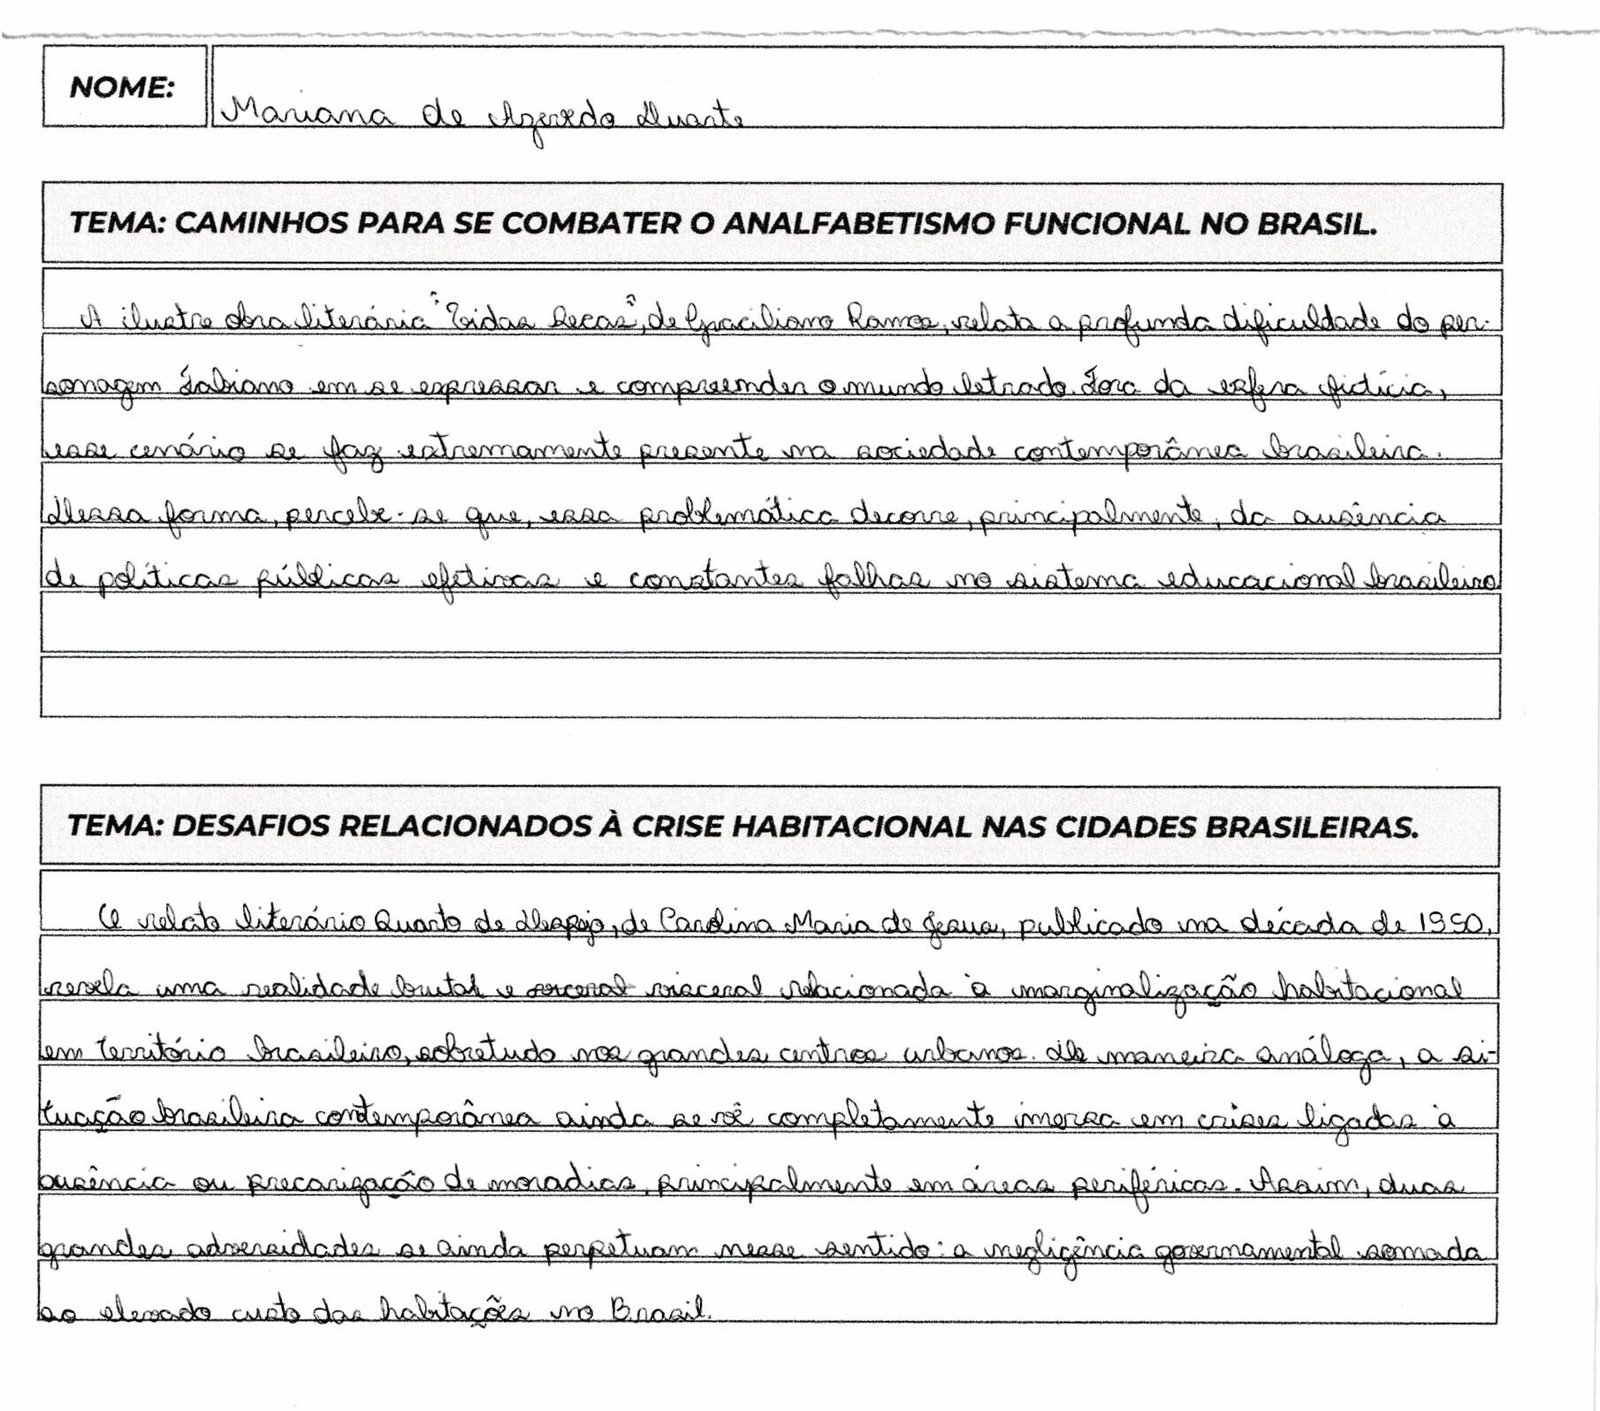 NOME:
Mariana de Azevedo Duarte
TEMA: CAMINHOS PARA SE COMBATER O ANALFABETISMO FUNCIONAL NO BRASIL.
A ilustre obra literária "Vidas Secas", de Graciliano Ramos, relata a profunda dificuldade do per-
sonagem Fabiano em se expressar e compreender o mundo letrado. Fora da esfera fictícia,
esse cenário se faz extremamente presente na sociedade contemporânea brasileira.
Dessa forma, percebe-se que, essa problemática decorre, principalmente, da ausência
de políticas públicas efetivas e constantes falhas no sistema educacional brasileiro
TEMA: DESAFIOS RELACIONADOS À CRISE HABITACIONAL NAS CIDADES BRASILEIRAS.
O relato literário Quarto de Despejo, de Carolina Maria de Jesus, publicado na década de 1950,
revela uma realidade brutal e visceral relacionada à marginalização habitacional
em território brasileiro, sobretudo nos grandes centros urbanos. De maneira análoga, a si-
tuação brasileira contemporânea ainda se vê completamente imersa em crises ligadas à
ausência ou precarização de moradias, principalmente em áreas periféricas. Assim, duas
grandes adversidades se ainda perpetuam nesse sentido: a negligência governamental somada
ao elevado custo das habitações no Brasil.